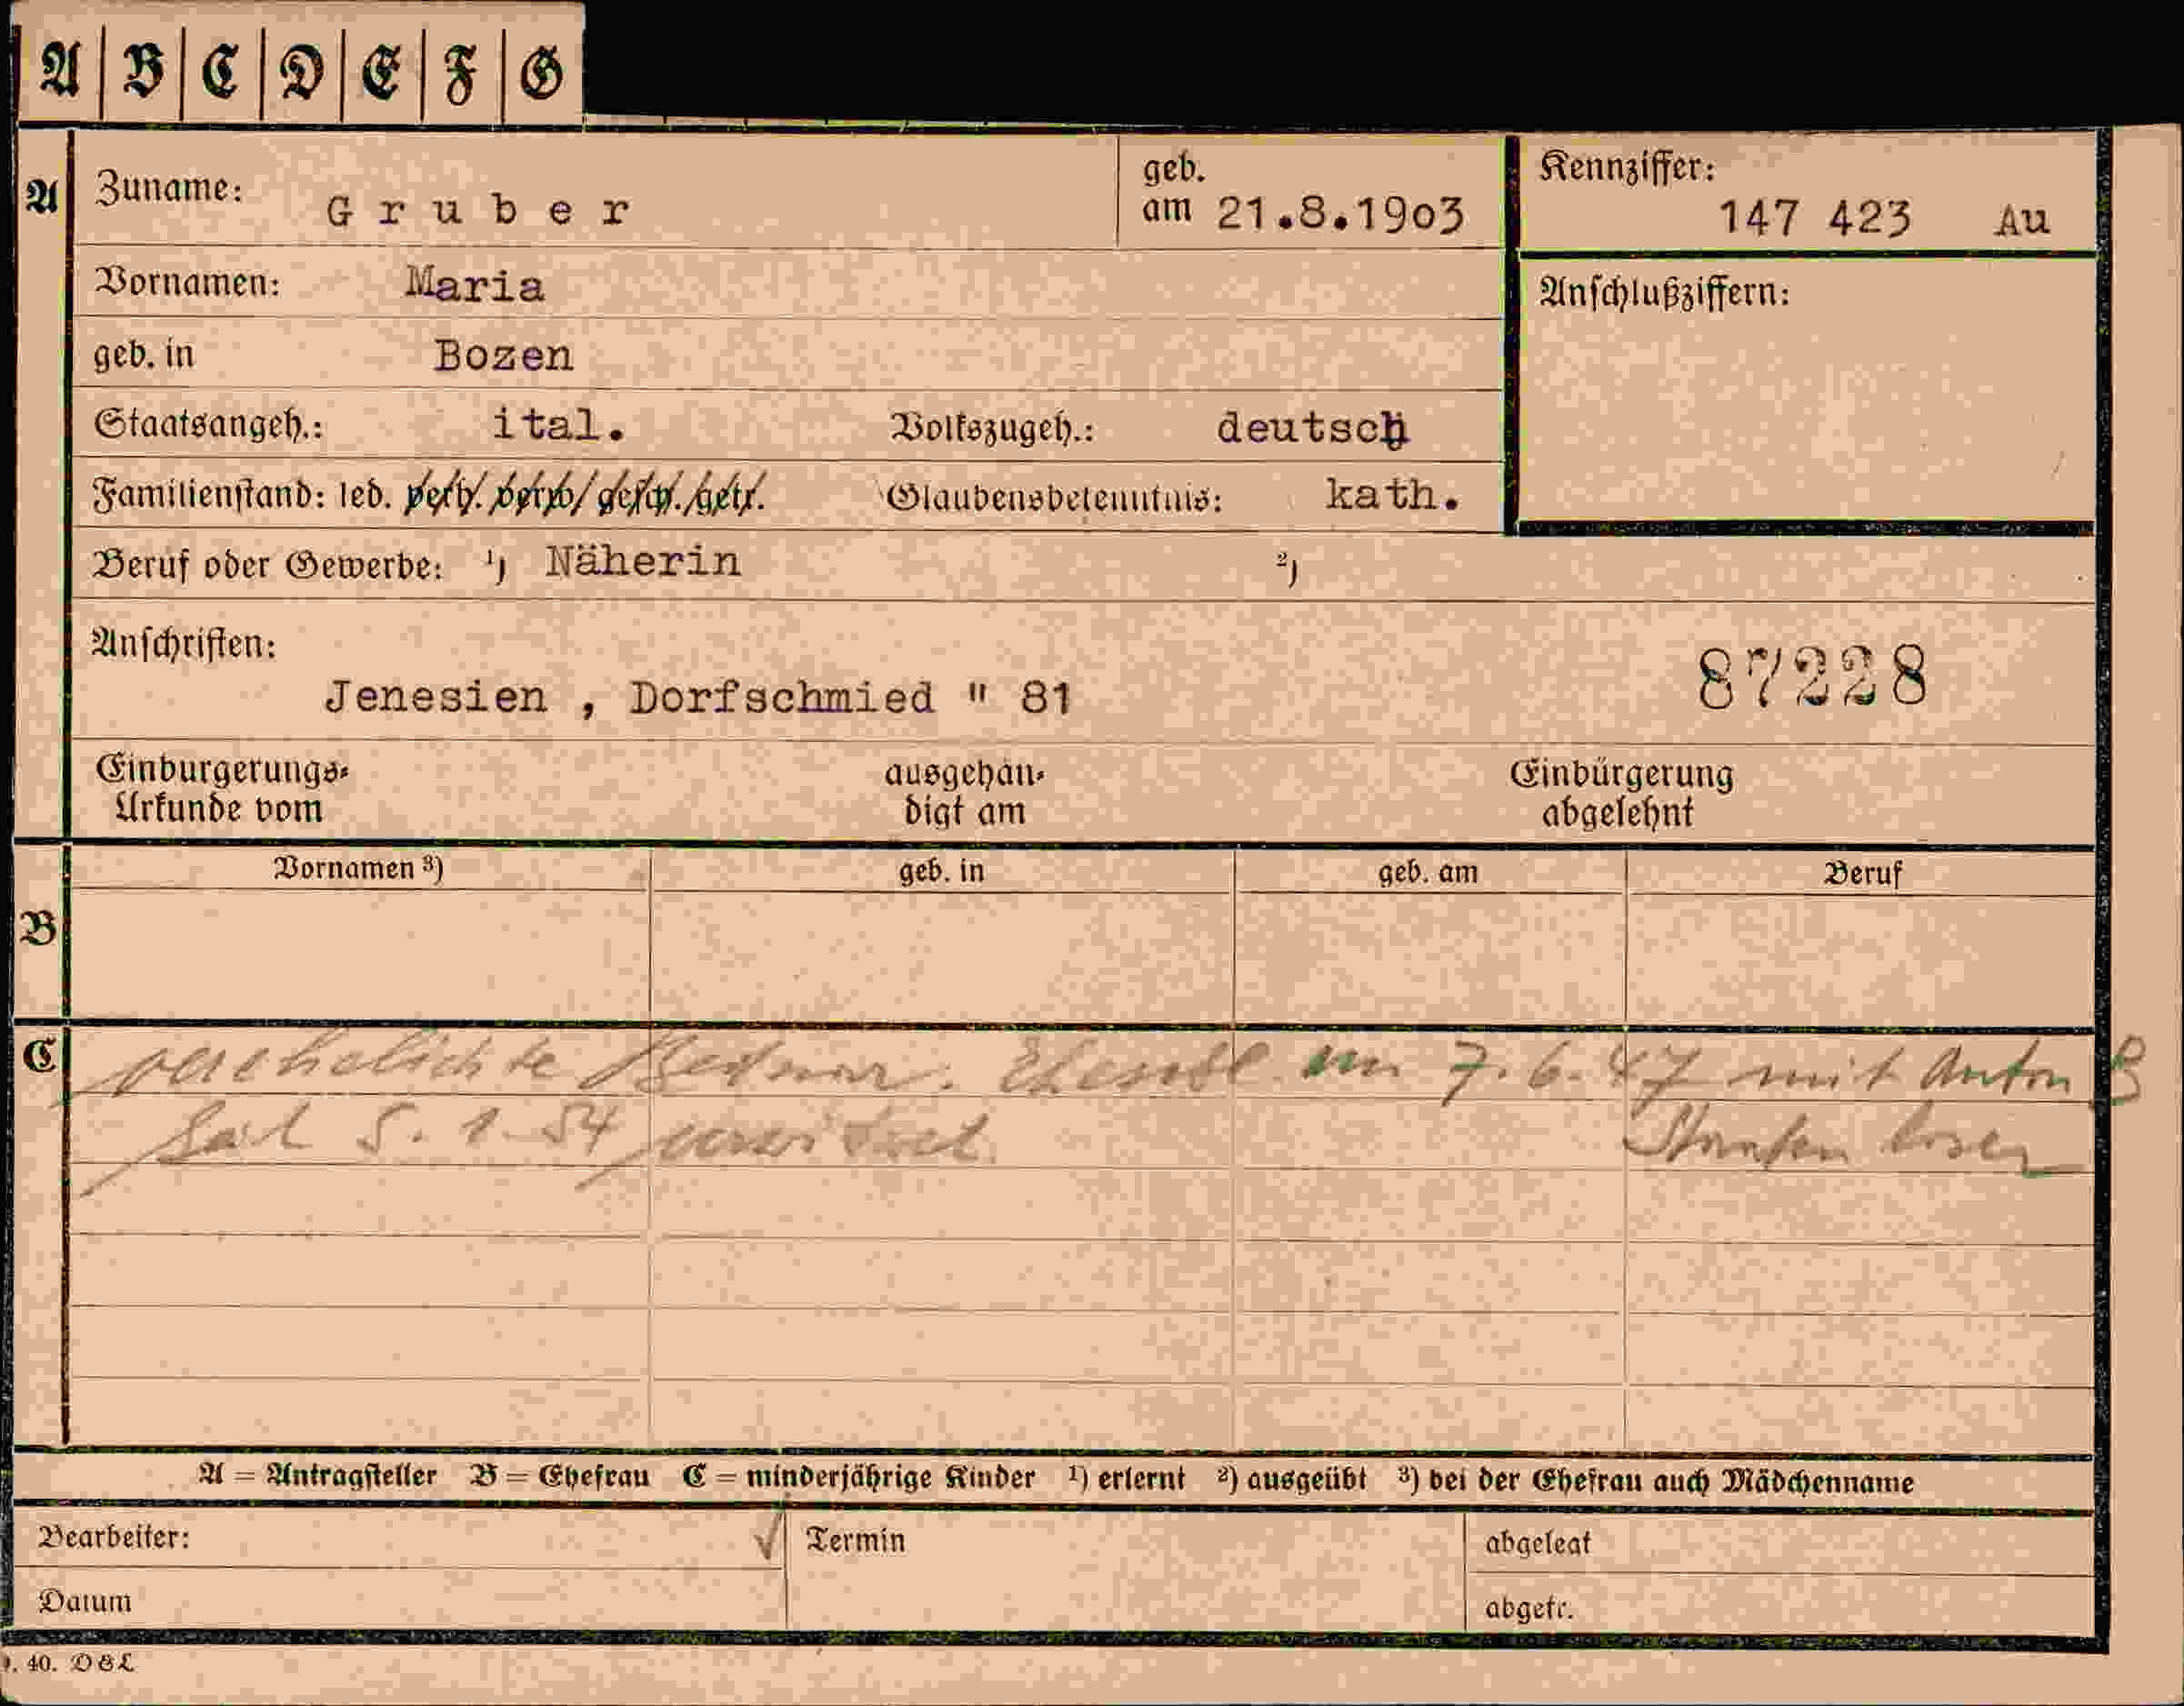 A B C D E F G
A Zuname: Gruber geb. am 21.8.1903 Kennziffer: 147 423 Au
Vornamen: Maria Anschlußziffern:
geb. in Bozen
Staatsangeh.: ital. Volkszugeh.: deutsch
Familienstand: led. verh. verw. gesch. getr. Glaubensbekenntnis: kath.
Beruf oder Gewerbe: ¹) Näherin ²)
Anschriften:
Jenesien , Dorfschmied " 81 87228
Einbürgerungs- ausgehän- Einbürgerung
Urkunde vom digt am abgelehnt
Vornamen ³) geb. in geb. am Beruf
B
C verehelichte am 7. 6. 47 mit Anton B
Seit 5. 1. 54 verwitwet. Staatenloser
A = Antragsteller B = Ehefrau C = minderjährige Kinder ¹) erlernt ²) ausgeübt ³) bei der Ehefrau auch Mädchenname
Bearbeiter: Termin abgelegt
Datum abgefr.
40. DGL